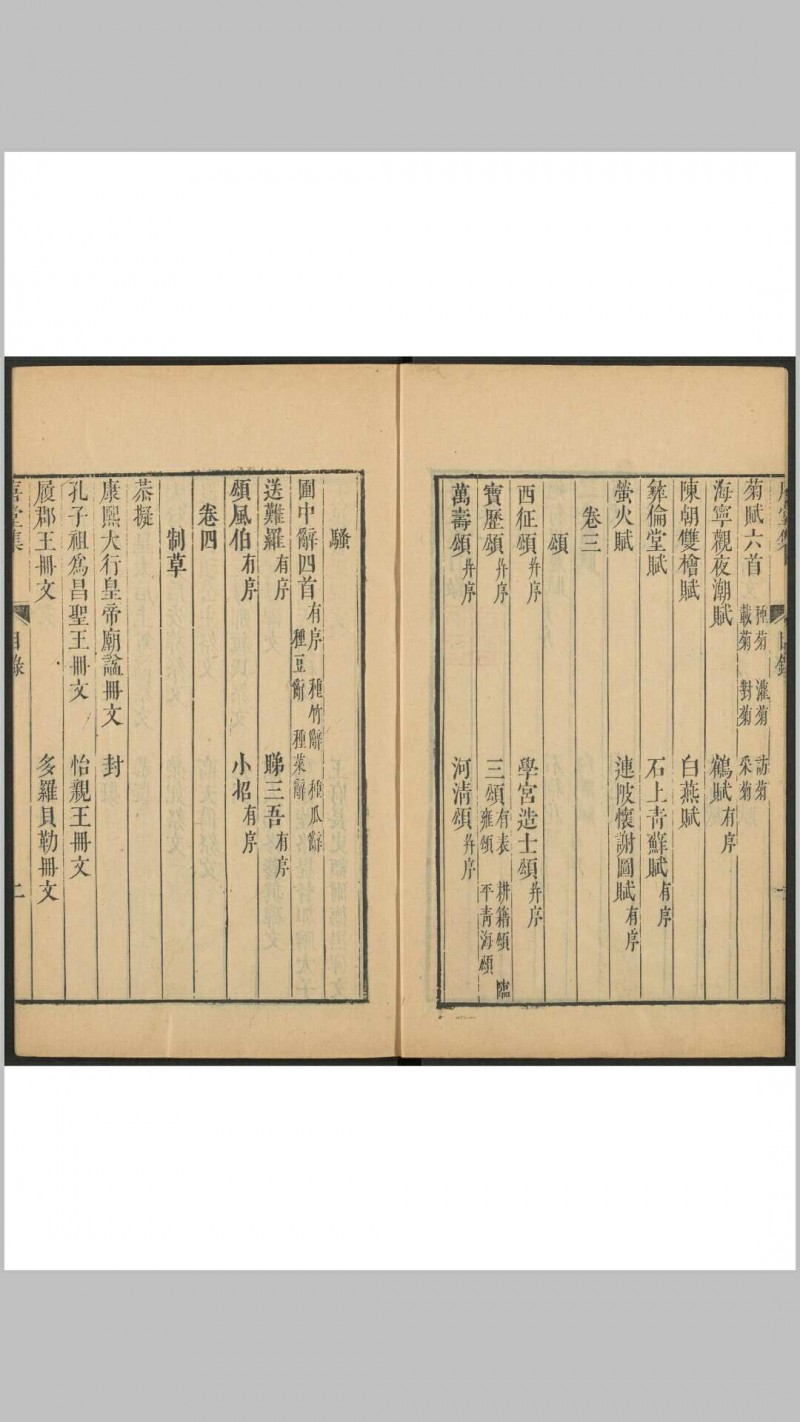 菊賦六首 種菊 灌菊 訪菊 載菊 對菊 采菊
海寧觀夜潮賦 鶴賦有序
陳朝雙檜賦 白燕賦
彝倫堂賦 石上青蘚賦有序
螢火賦 連陂懷謝圖賦有序
卷三
頌
西征頌并序 學宮造士頌并序
寶歷頌并序 三頌有表 耕籍頌 臨雍頌 平靑海頌
萬壽頌并序 河清頌并序
騷
圃中辭四首有序 種竹辭 種瓜辭 種豆辭 種菜辭
送難羅有序 睇三吾有序
頌風伯有序 小招有序
卷四
制草
恭擬
康熙大行皇帝廟諡冊文 封
孔子祖為昌聖王冊文 怡親王冊文
履郡王冊文 多羅貝勒冊文
目錄 二